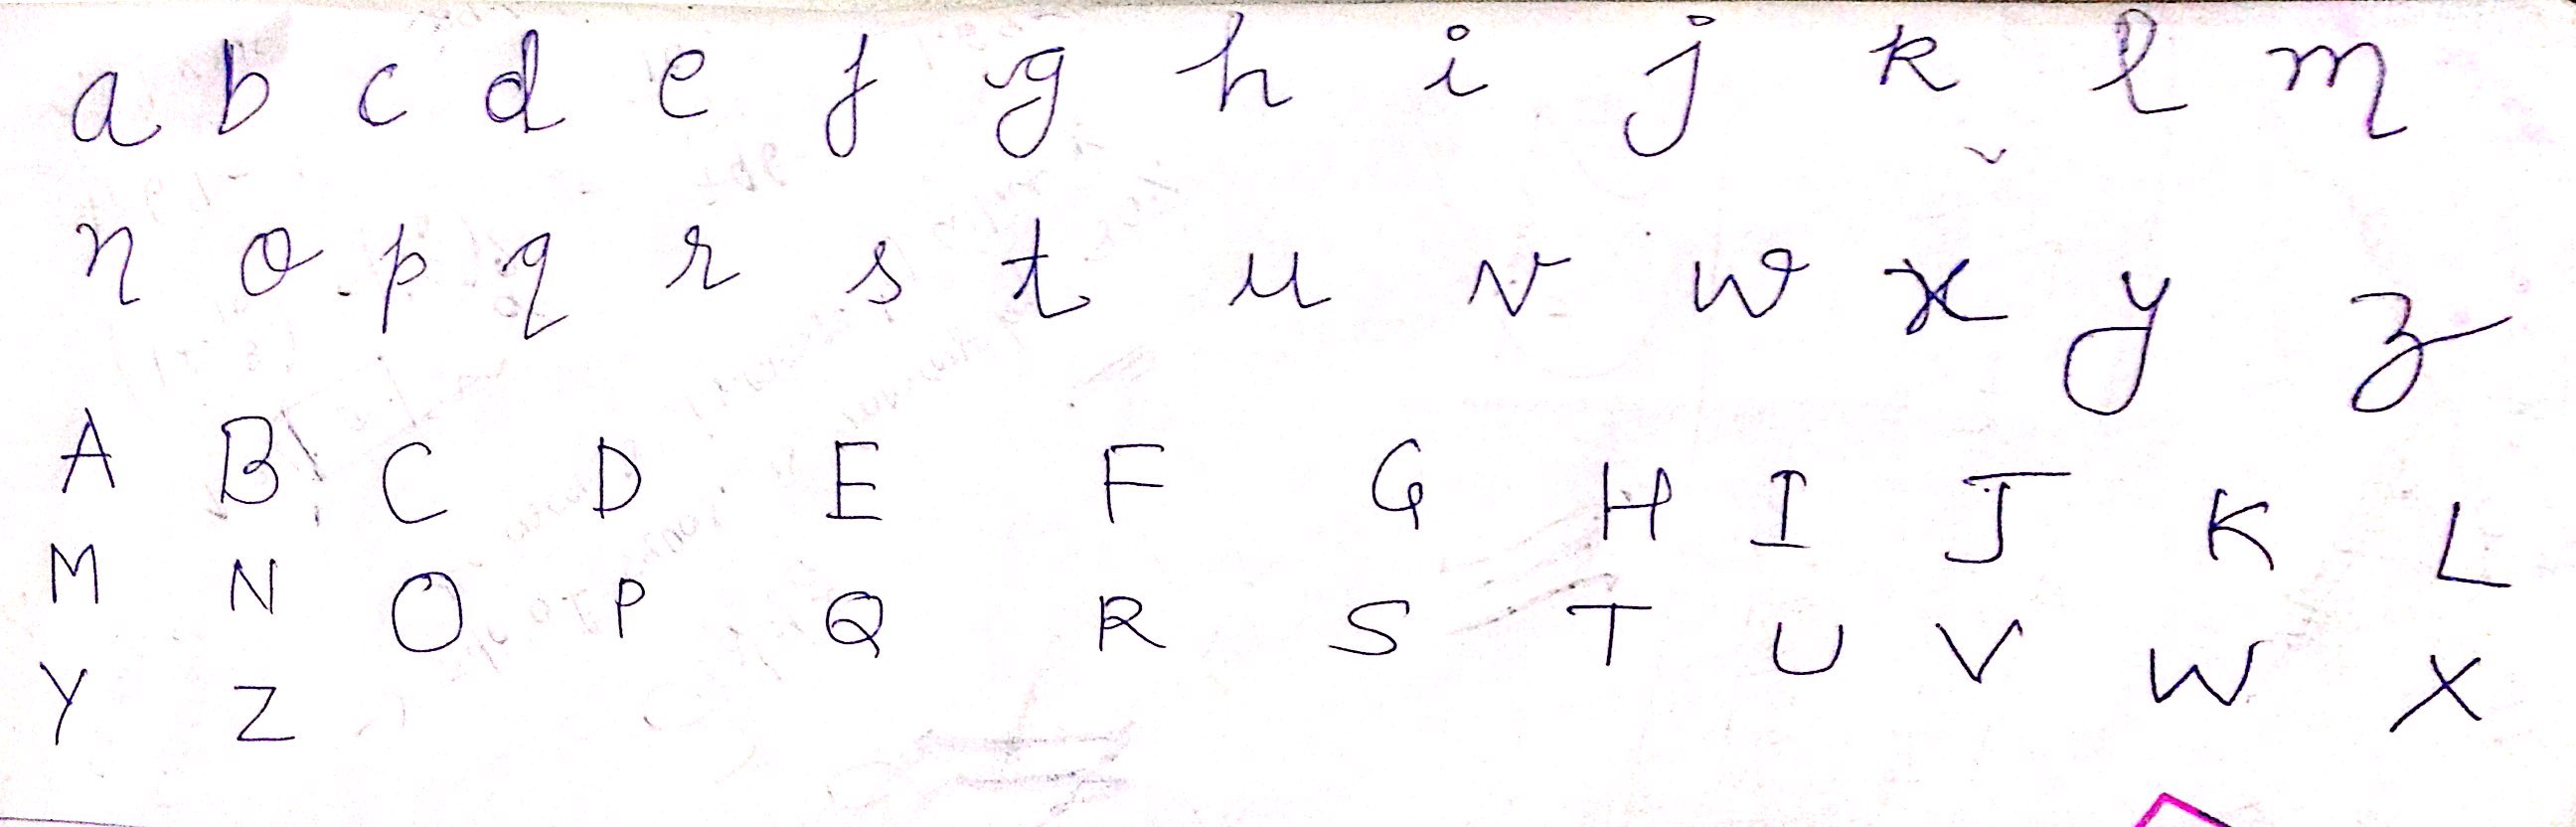 a b c d e f g h i j k l m
n o p q r s t u v w x y z
A B C D E F G H I J K L
M N O P Q R S T U V W X
Y Z